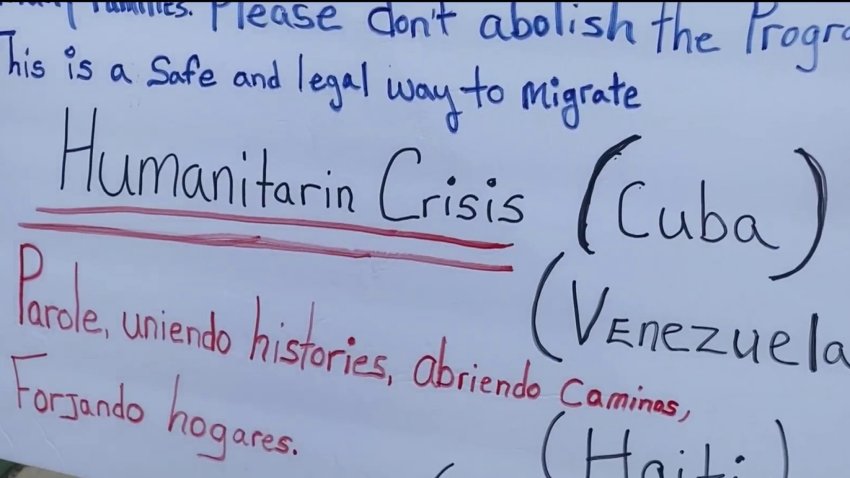 Families. Please don't abolish the Progra
This is a Safe and legal way to Migrate
Humanitarin Crisis (Cuba)
(Venezuela
Parole, uniendo histories, abriendo Caminos,
Forjando hogares.
(Haiti)